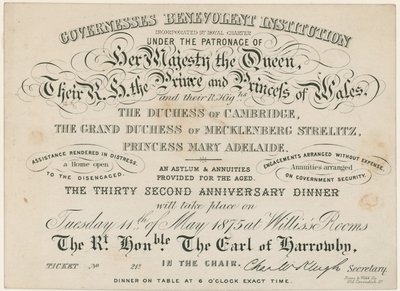 GOVERNESSES BENEVOLENT INSTITUTION
INCORPORATED BY ROYAL CHARTER
UNDER THE PATRONAGE OF
Her Majesty the Queen,
Their R.H. the Prince and Princess of Wales.
and their R. Highs
THE DUCHESS OF CAMBRIDGE,
THE GRAND DUCHESS OF MECKLENBERG STRELITZ,
PRINCESS MARY ADELAIDE.
ASSISTANCE RENDERED IN DISTRESS.
a Home open
TO THE DISENGAGED.
AN ASYLUM & ANNUITIES
PROVIDED FOR THE AGED.
ENGAGEMENTS ARRANGED WITHOUT EXPENSE.
Annuities arranged
ON GOVERNMENT SECURITY.
THE THIRTY SECOND ANNIVERSARY DINNER
will take place on
Tuesday 11th of May 1875 at Willis's Rooms
The Rt. Honble The Earl of Harrowby,
TICKET No 21s
IN THE CHAIR.
Chas W Klugh Secretary.
DINNER ON TABLE AT 6 O'CLOCK EXACT TIME.
Old Cavendish St